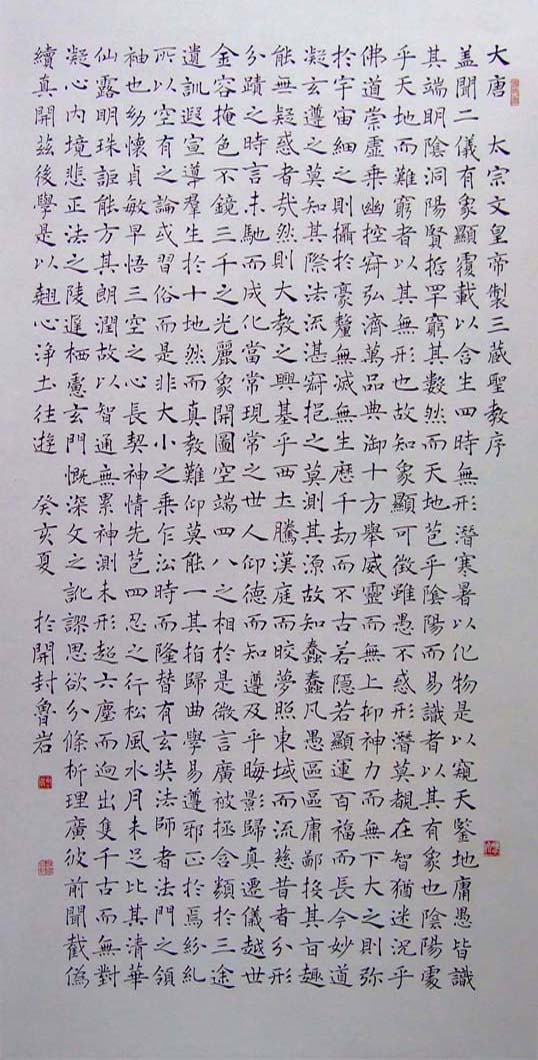 大唐　太宗文皇帝製三藏聖教序
盖聞二儀有象顯覆載以含生四時無形潛寒暑以化物是以窺天鑒地庸愚皆識
其端明陰洞陽賢哲罕窮其數然而天地苞乎陰陽而易識者以其有象也陰陽處
乎天地而難窮者以其無形也故知象顯可徵雖愚不惑形潛莫覩在智猶迷況乎
佛道崇虛乘幽控寂弘濟萬品典御十方舉威靈而無上抑神力而無下大之則弥
於宇宙細之則攝於豪釐無滅無生歷千劫而不古若隱若顯運百福而長今妙道
凝玄遵之莫知其際法流湛寂挹之莫測其源故知蠢蠢凡愚區區庸鄙投其旨趣
能無疑惑者哉然則大教之興基乎西土騰漢庭而皎夢照東域而流慈昔者分形
分蹟之時言未馳而成化當常現常之世人仰德而知遵及乎晦影歸真遷儀越世
金容掩色不鏡三千之光麗象開圖空端四八之相於是微言廣被拯含類於三途
遺訓遐宣導羣生於十地然而真教難仰莫能一其指歸曲學易遵邪正於焉紛糺
所以空有之論或習俗而是非大小之乘乍沿時而隆替有玄奘法師者法門之領
袖也幼懷貞敏早悟三空之心長契神情先苞四忍之行松風水月未足比其清華
仙露明珠詎能方其朗潤故以智通無累神測未形超六塵而迥出隻千古而無對
凝心內境悲正法之陵遲栖慮玄門慨深文之訛謬思欲分條析理廣彼前聞截偽
續真開茲後學是以翹心淨土往遊　癸亥夏　於開封魯岩